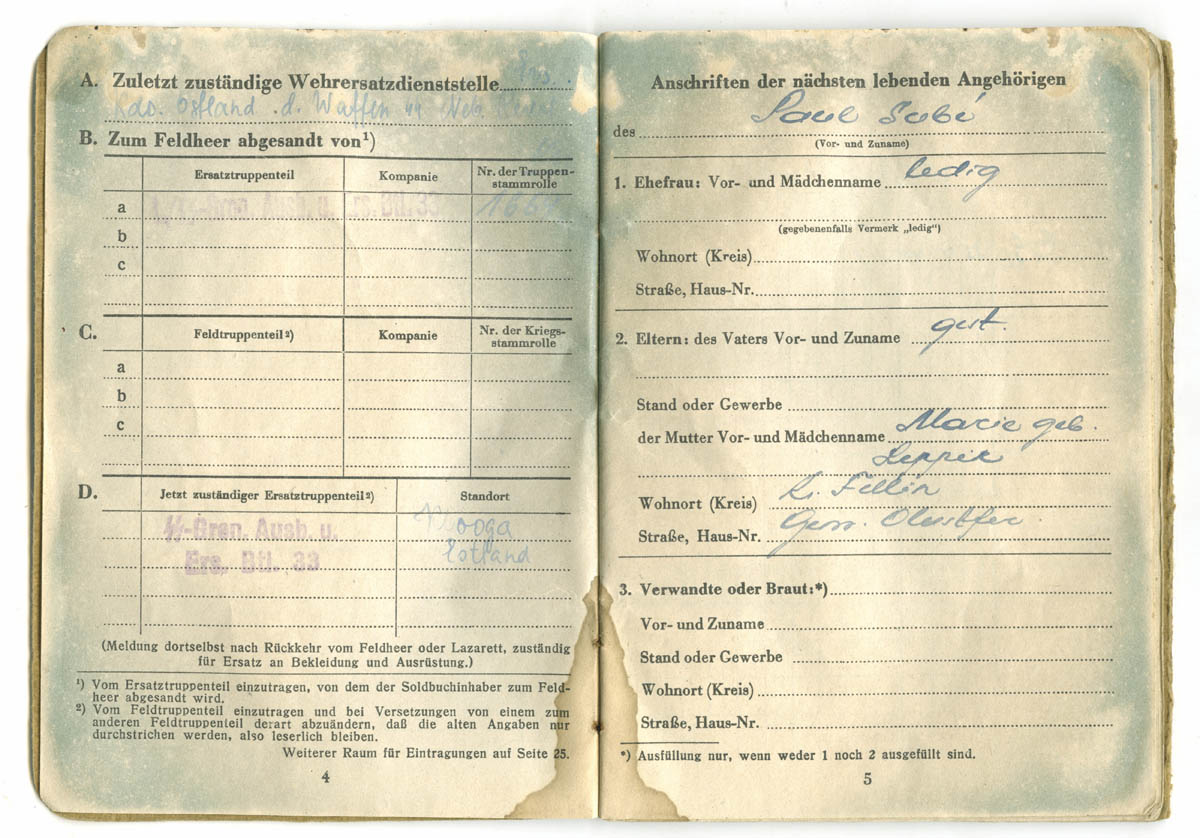 A. Zuletzt zuständige Wehrersatzdienststelle
Kdo. Ostland d. Waffen SS
B. Zum Feldheer abgesandt von¹)
Ersatztruppenteil Kompanie Nr. der Truppen-
stammrolle
a
b
c
C. Feldtruppenteil²) Kompanie Nr. der Kriegs-
stammrolle
a
b
c
D. Jetzt zuständiger Ersatztruppenteil²) Standort
SS-Gren. Ausb. u. Klooga
Ers. Btl. 33 Estland
(Meldung dortselbst nach Rückkehr vom Feldheer oder Lazarett, zuständig
für Ersatz an Bekleidung und Ausrüstung.)
¹) Vom Ersatztruppenteil einzutragen, von dem der Soldbuchinhaber zum Feld-
heer abgesandt wird.
²) Vom Feldtruppenteil einzutragen und bei Versetzungen von einem zum
anderen Feldtruppenteil derart abzuändern, daß die alten Angaben nur
durchstrichen werden, also leserlich bleiben.
Weiterer Raum für Eintragungen auf Seite 25.
4
Anschriften der nächsten lebenden Angehörigen
des Paul
(Vor- und Zuname)
1. Ehefrau: Vor- und Mädchenname ledig
(gegebenenfalls Vermerk „ledig")
Wohnort (Kreis)
Straße, Haus-Nr.
2. Eltern: des Vaters Vor- und Zuname gest.
Stand oder Gewerbe
der Mutter Vor- und Mädchenname Marie geb.
Wohnort (Kreis) Kr. Fellin
Straße, Haus-Nr. Gem.
3. Verwandte oder Braut:*)
Vor- und Zuname
Stand oder Gewerbe
Wohnort (Kreis)
Straße, Haus-Nr.
*) Ausfüllung nur, wenn weder 1 noch 2 ausgefüllt sind.
5